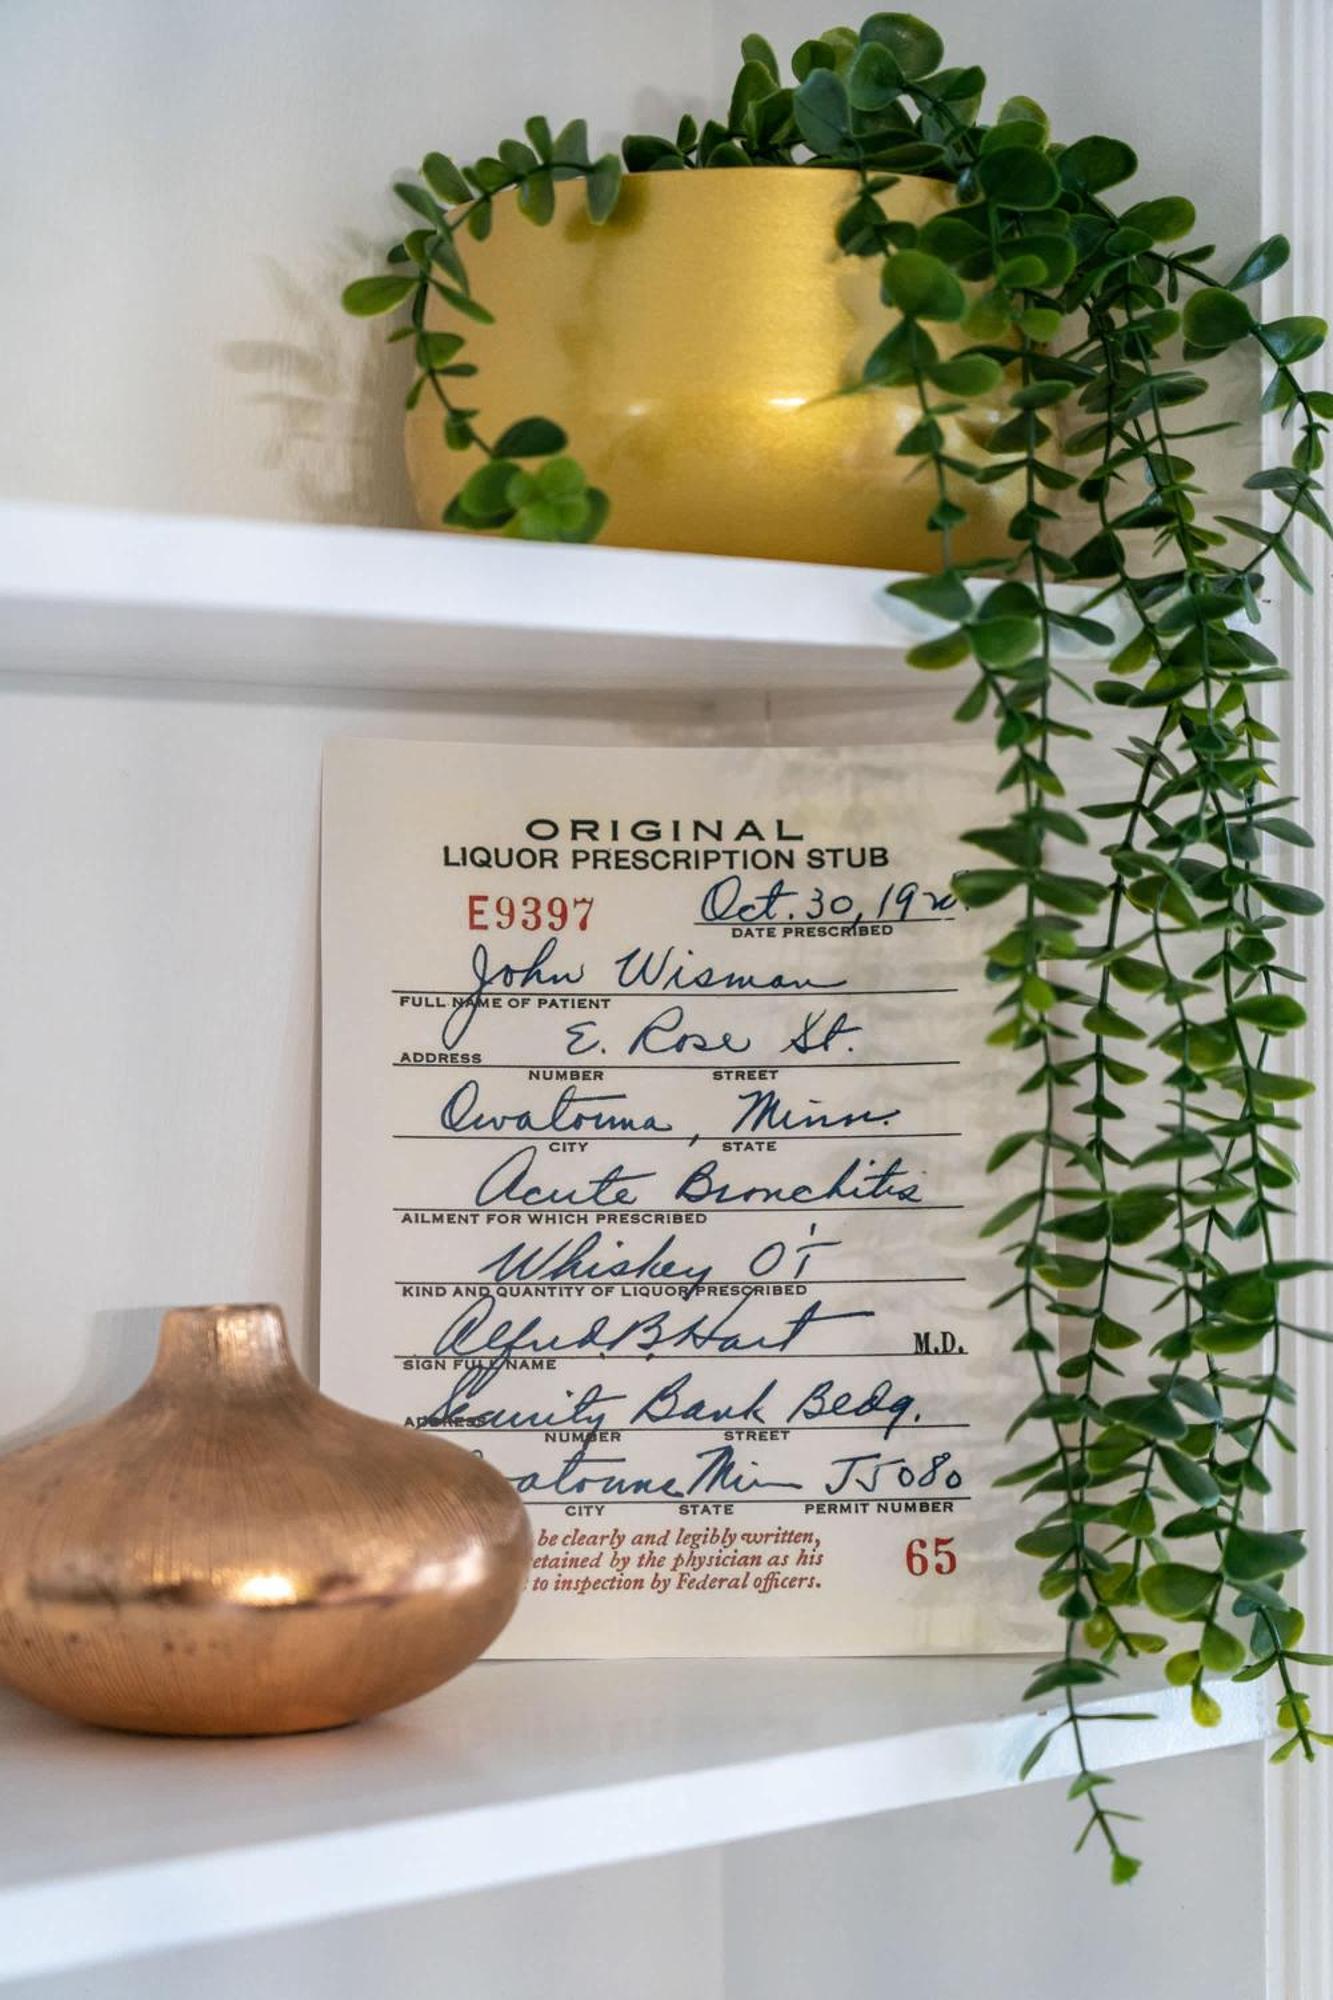 ORIGINAL
LIQUOR PRESCRIPTION STUB
E9397 Oct. 30, 19
DATE PRESCRIBED
John Wisman
FULL NAME OF PATIENT
E. Rose St.
ADDRESS
NUMBER STREET
Owatonna, Minn.
CITY STATE
Acute Bronchitis
AILMENT FOR WHICH PRESCRIBED
Whiskey
KIND AND QUANTITY OF LIQUOR PRESCRIBED
Alfred B Hart M.D.
SIGN FULL NAME
Security Bank Bldg.
ADDRESS
NUMBER STREET
Minn
CITY STATE PERMIT NUMBER
be clearly and legibly written,
by the physician as his
to inspection by Federal officers.
65